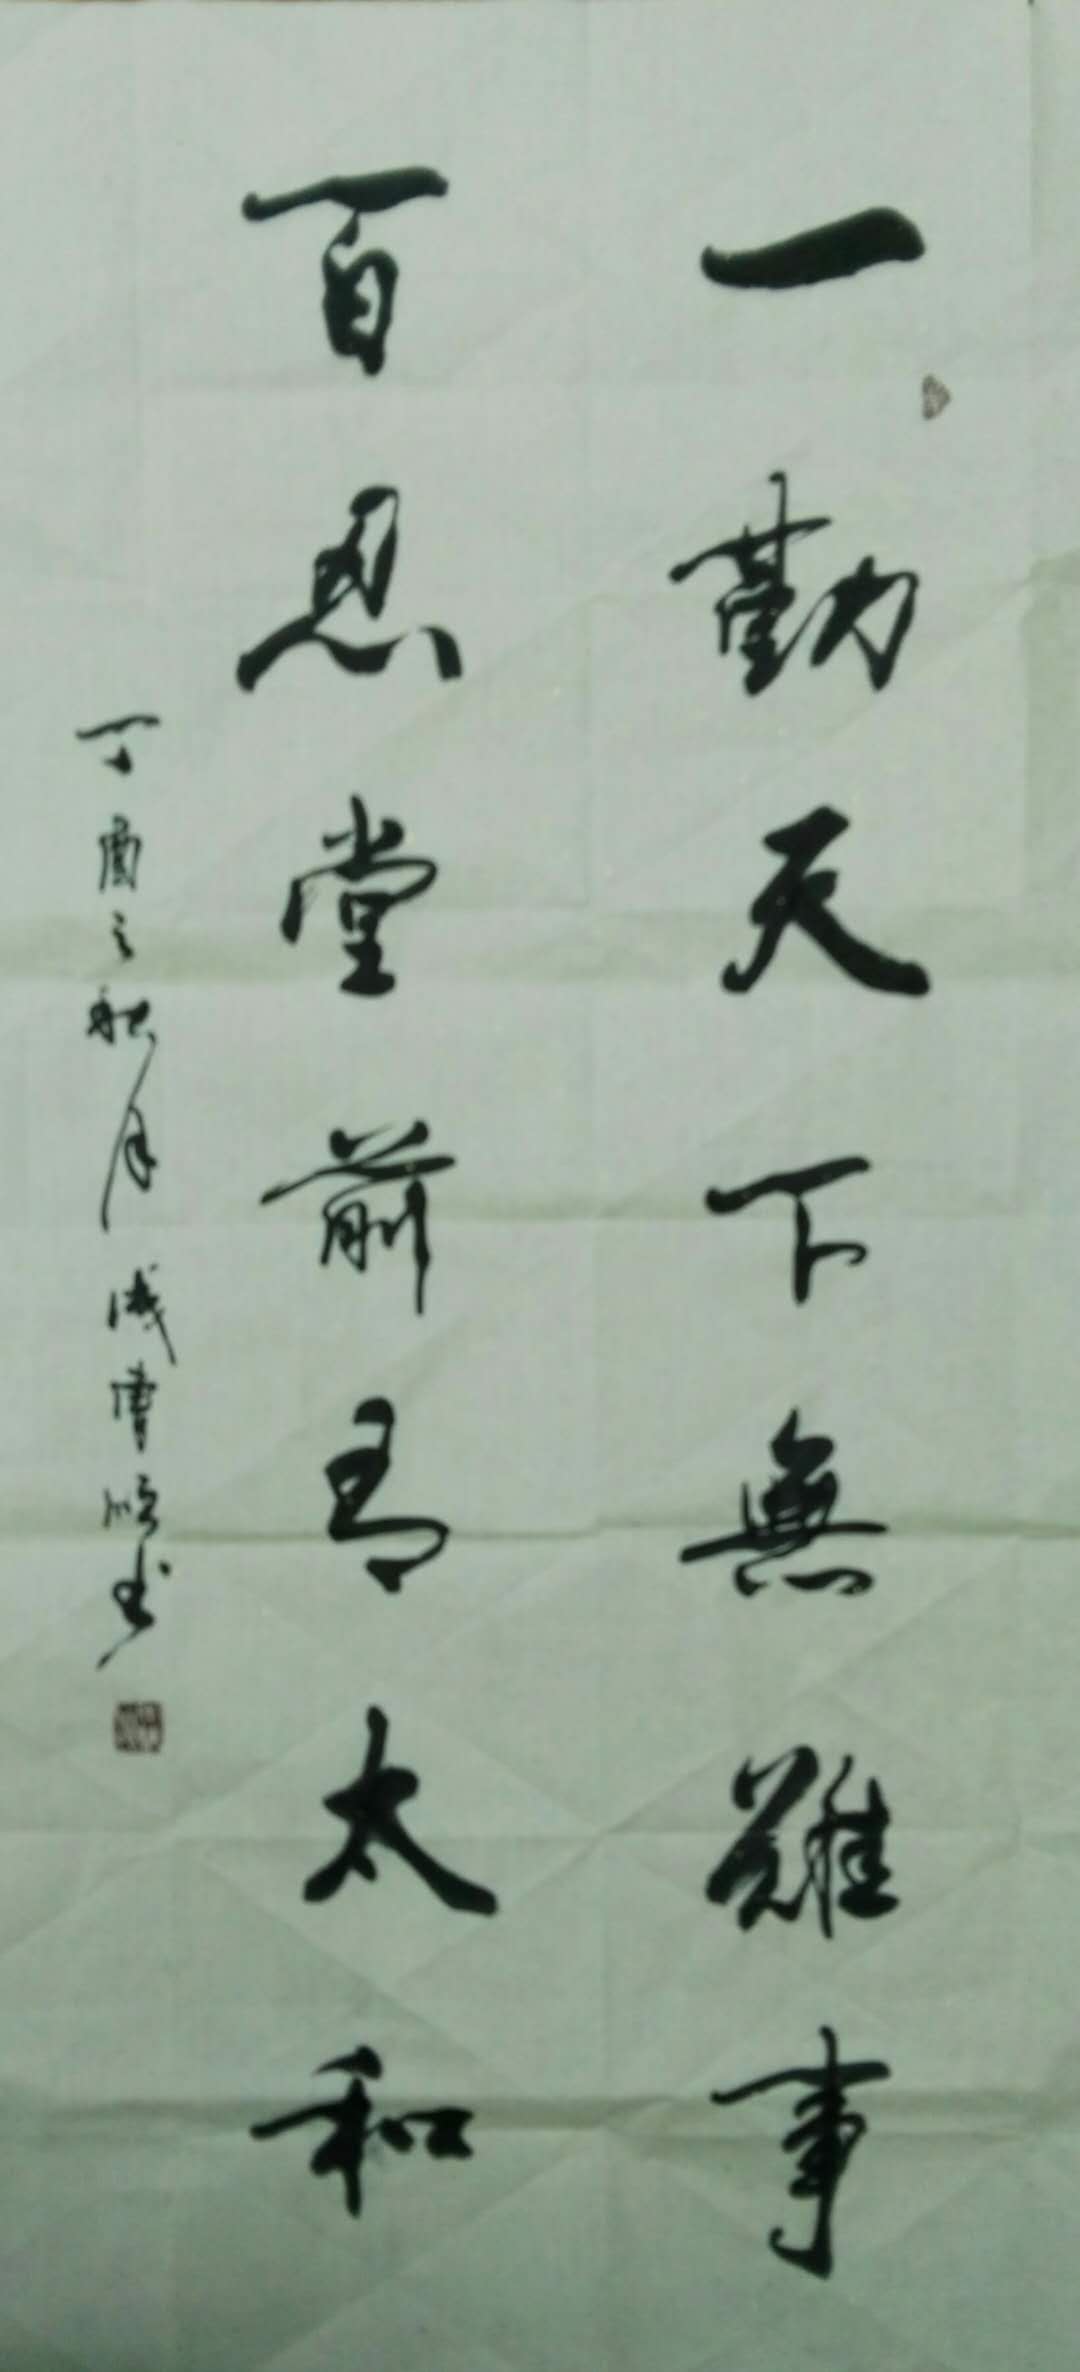 一勤天下無難事
百忍堂前有太和
丁酉之秋月
書